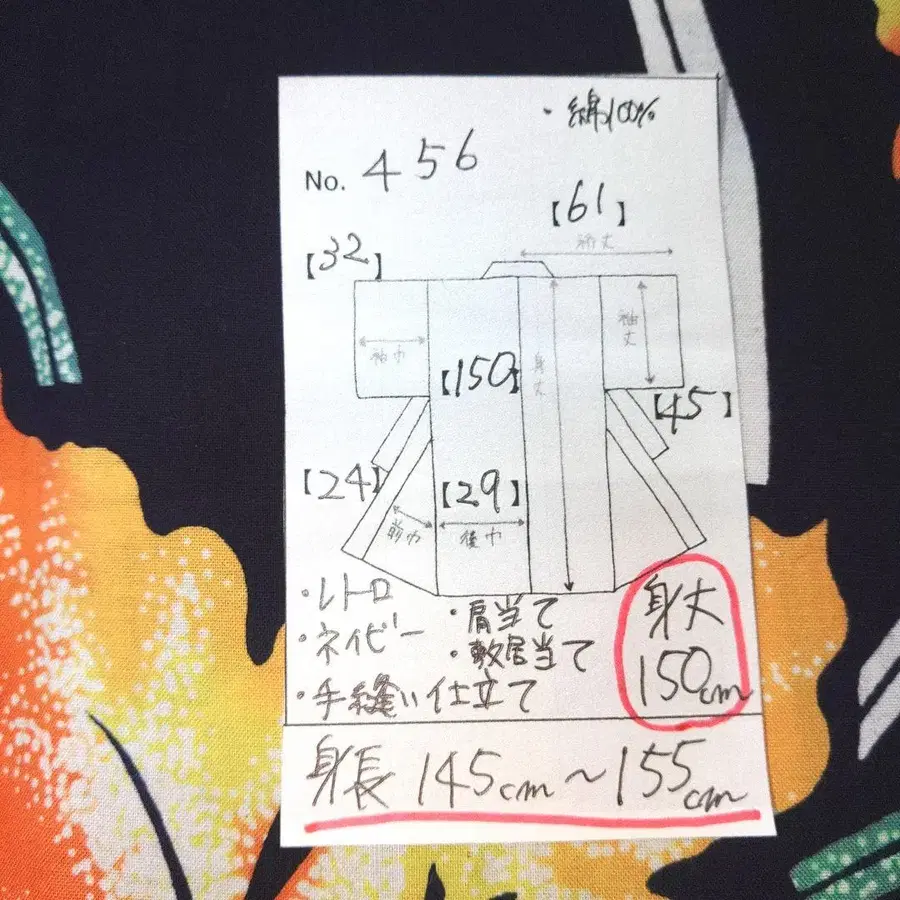 ・綿100%
No. 456
【61】
裄丈
【32】
袖巾
袖丈
【150】
身丈
【45】
【24】
【29】
前巾
後巾
・レトロ
・ネイビー
・手縫い仕立て
・肩当て
・敷居当て
身丈
150cm
身長 145cm～155cm